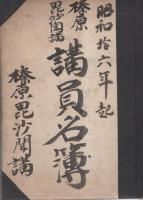 昭和拾六年起
榛原
毘沙聞講
講員名簿
榛原毘沙聞講